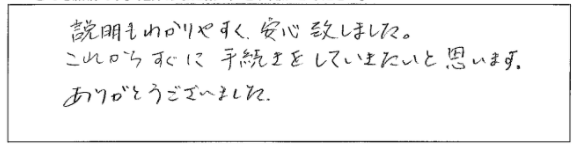 説明もわかりやすく、安心致しました。
これからすぐに手続きをしていきたいと思います。
ありがとうございました。